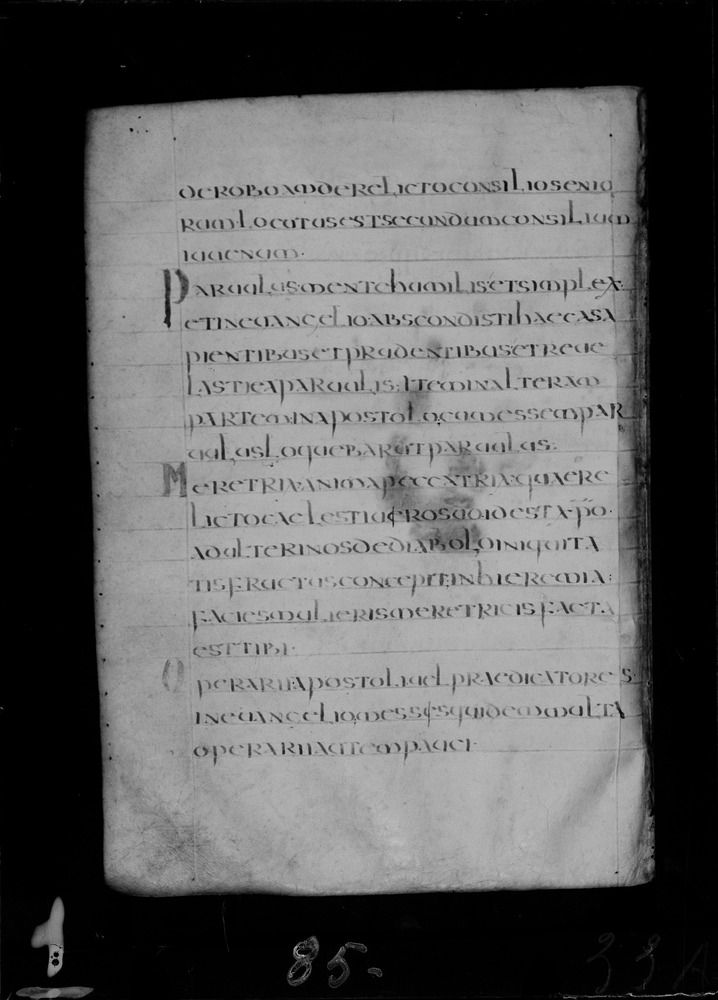 DEROBOAMDERELICTOCONSILIOSENIO
RUMLOCUTUSESTSECUNDUMCONSILIUM
IUUENUM·
PARUULUSMENTEHUMILISETSIMPLEX·
ETINEUANGELIOABSCONDISTIHAECASA
PIENTIBUSETPRUDENTIBUSETREUE
LASTIEAPARUULIS:ITEMINALTERAM
PARTEMINAPOSTOLOCUMESSEMPAR
UULUSLOQUEBARUTPARUULUS:
MERETRIXANIMAPECCATRIXQUAERE
LICTOCAELESTIUEROSUOIDESTXPO·
ADULTERINOSDEDIABOLOINIQUITA
TISFRUCTUSCONCEPITINHIEREMIA:
FACIESMULIERISMERETRICISFACTA
ESTTIBI·
OPERARIIAPOSTOLIUELPRAEDICATORES
INEUANGELIOMESSISQUIDEMMULTA
OPERARIIAUTEMPAUCI·
85-
33A